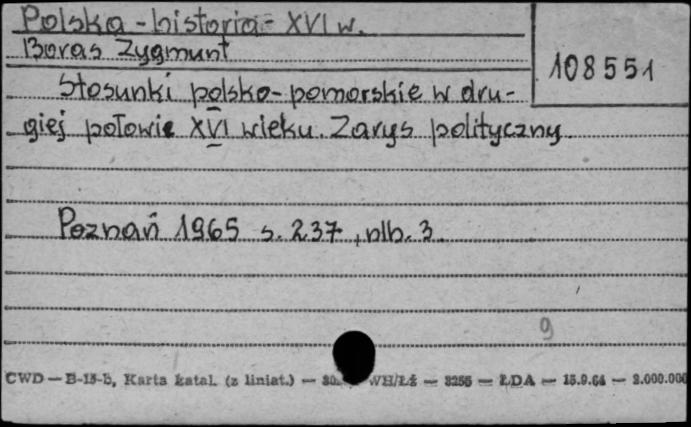 Polska - historia - XVI w.
Boras Zygmunt
108551
Stosunki polsko-pomorskie w dru-
giej połowie XVI wieku. Zarys polityczny.
Poznań 1965 s. 237, nlb. 3.
9
CWD — B-15-b, Karta katal. (z liniat.) — WH/Łź — 3255 — ŁDA — 15.9.64 — 2.000.000